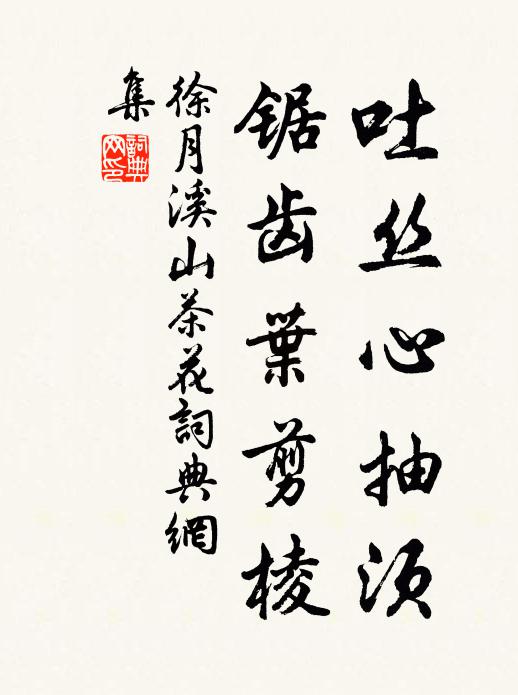 吐丝心抽须
锯齿葉剪棱
徐月溪山茶花詞典網
集
詞典
网印